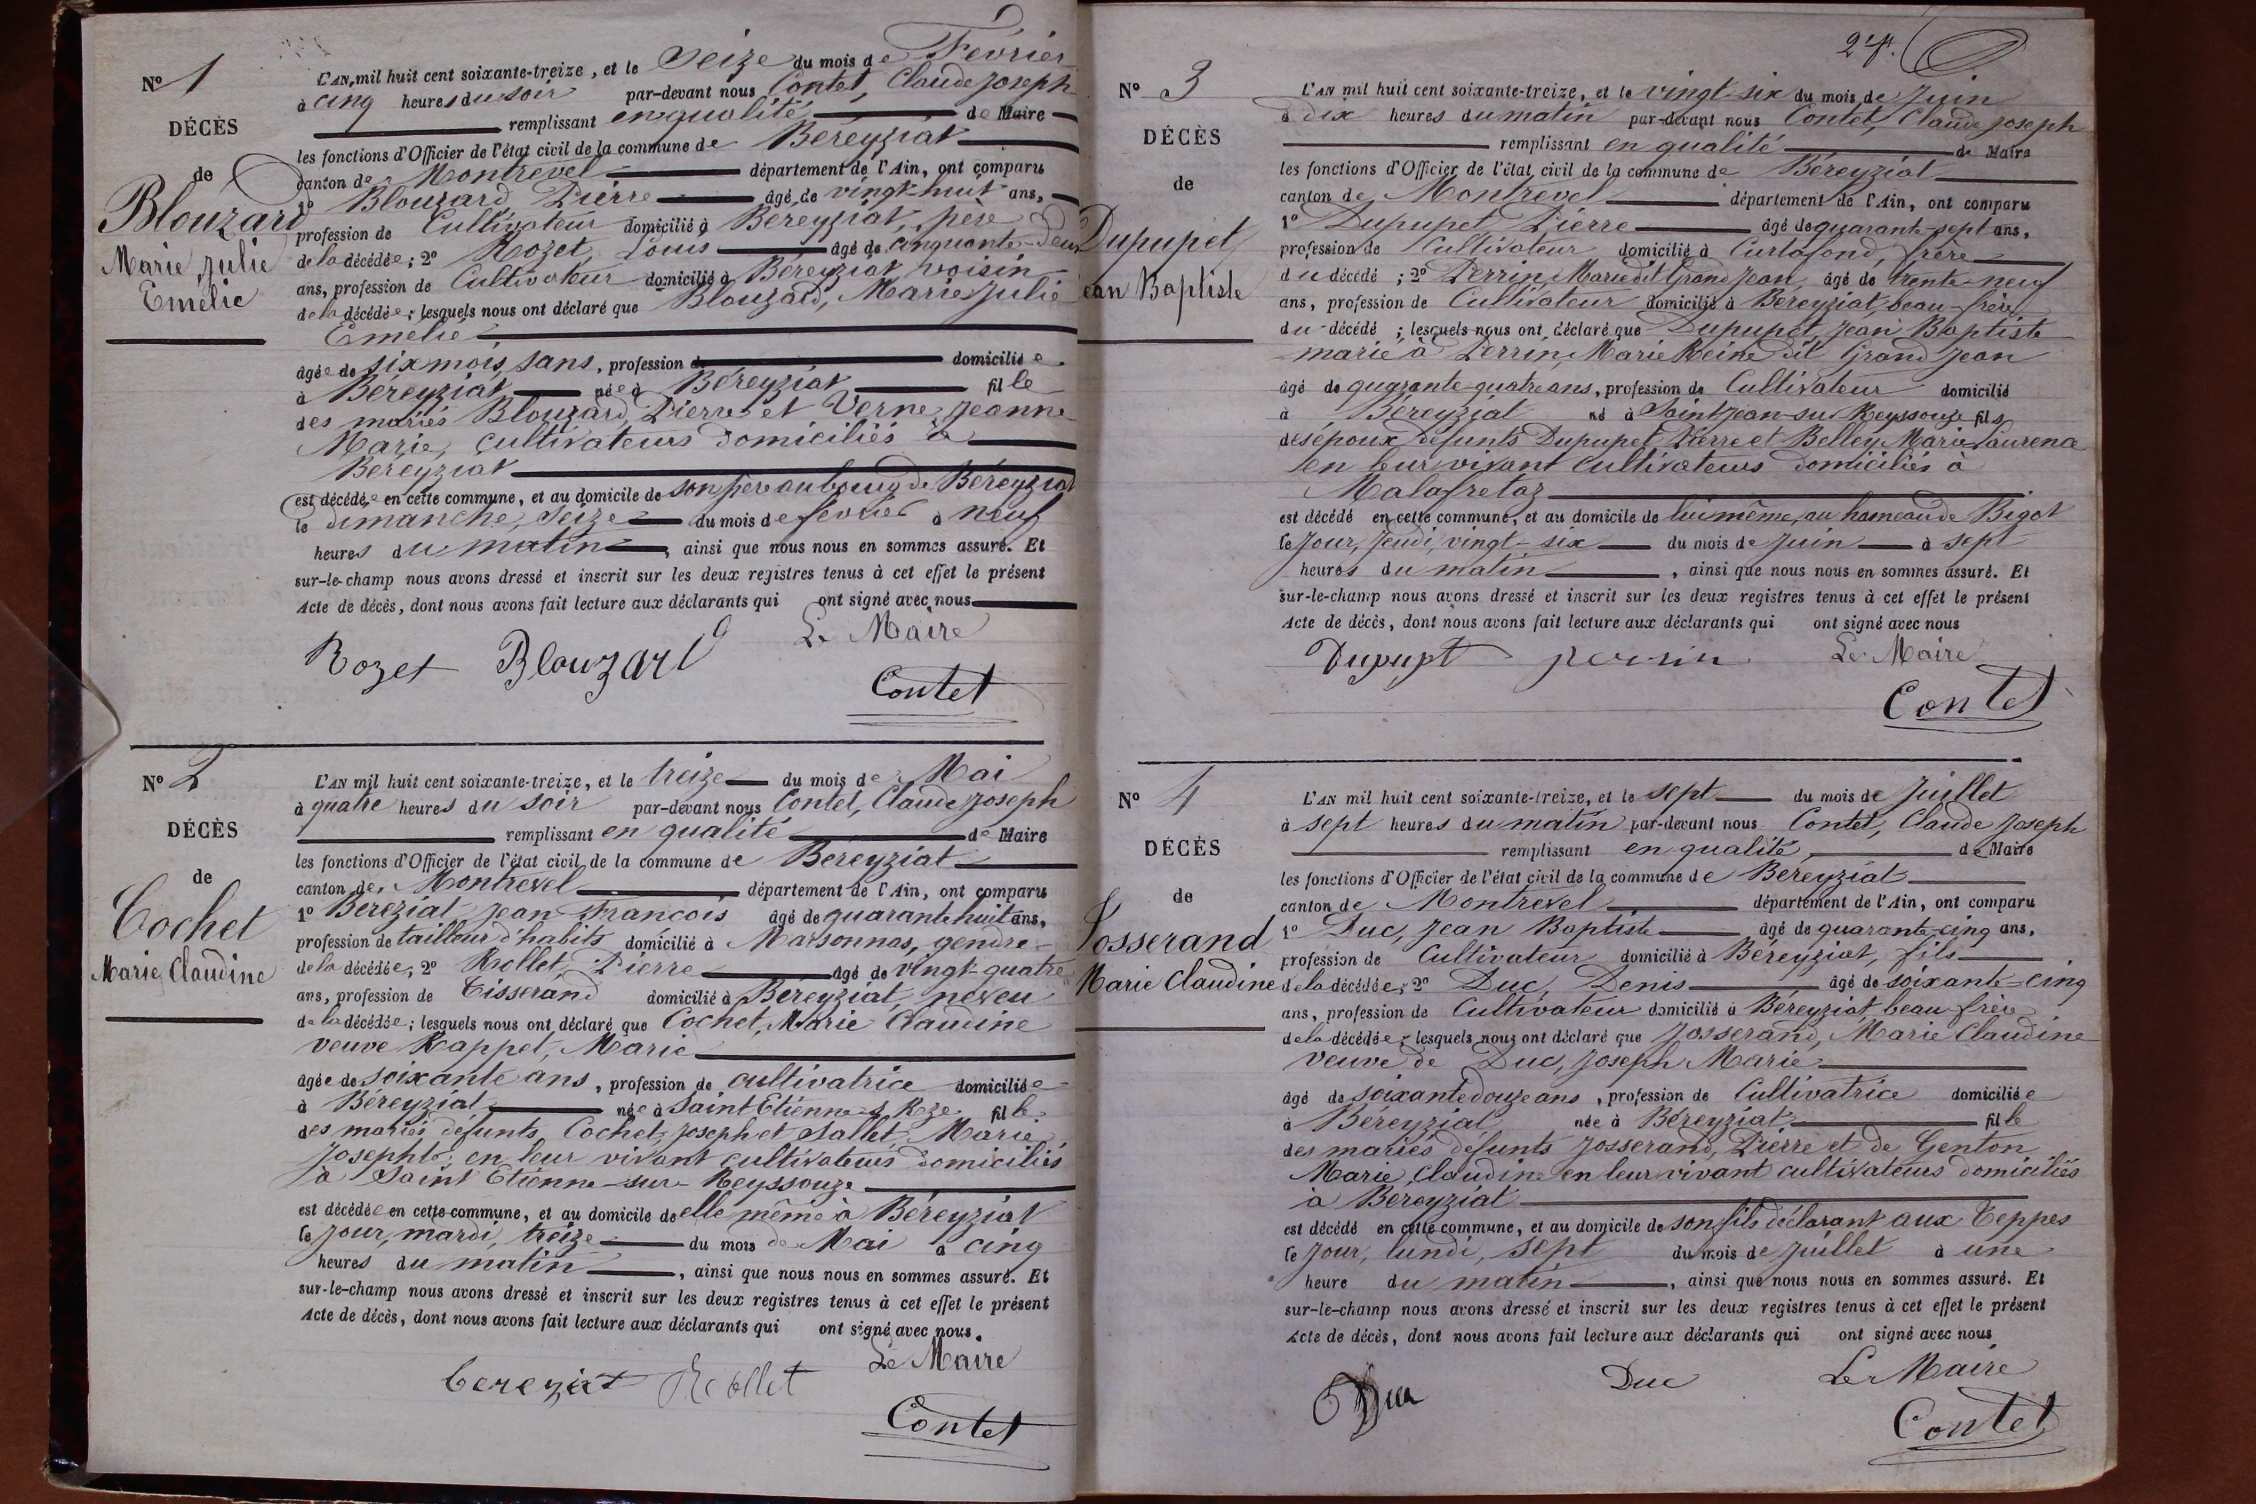 Nº 1
DÉCÈS
de
Blouzard
Marie Julie
Emélie
L'AN mil huit cent soixante-treize, et le Seize du mois de Février
à cinq heures du soir par-devant nous Contet, Claude Joseph
remplissant en qualité de Maire
les fonctions d'Officier de l'état civil de la commune de Béreyziat
canton de Montrevel département de l'Ain, ont comparu
1º Blouzard Pierre âgé de vingt-huit ans,
profession de Cultivateur domicilié à Béreyziat, père
de la décédée; 2º Rozet, Louis âgé de cinquante-deux
ans, profession de Cultivateur domicilié à Béreyziat, voisin
de la décédée; lesquels nous ont déclaré que Blouzard, Marie Julie
Emélie
âgée de six mois, sans, profession domiciliée
à Béreyziat née à Béreyziat fille
des mariés Blouzard, Pierre et Verne, Jeanne
Marie, cultivateurs domiciliés à
Béreyziat
est décédée en cette commune, et au domicile de son père au bourg de Béreyziat
le dimanche, seize du mois de février à neuf
heures du matin, ainsi que nous nous en sommes assuré. Et
sur-le-champ nous avons dressé et inscrit sur les deux registres tenus à cet effet le présent
Acte de décès, dont nous avons fait lecture aux déclarants qui ont signé avec nous
Le Maire
Rozet Blouzard
Contet
Nº 2
DÉCÈS
de
Cochet
Marie Claudine
L'AN mil huit cent soixante-treize, et le treize du mois de Mai
à quatre heures du soir par-devant nous Contet, Claude Joseph
remplissant en qualité de Maire
les fonctions d'Officier de l'état civil de la commune de Béreyziat
canton de Montrevel département de l'Ain, ont comparu
1º Bereziat Jean François âgé de quarante huit ans,
profession de tailleur d'habits domicilié à Marsonnas, gendre
de la décédée; 2º Rollet, Pierre âgé de vingt-quatre
ans, profession de Tisserand domicilié à Béreyziat, neveu
de la décédée; lesquels nous ont déclaré que Cochet, Marie Claudine
veuve Rappet, Marie
âgée de soixante ans, profession de cultivatrice domiciliée
à Béreyziat née à Saint Etienne s Reze fille
des mariés défunts Cochet, Joseph et Sallet, Marie
Josephte, en leur vivant cultivateurs domiciliés
à Saint Etienne-sur-Reyssouze
est décédée en cette commune, et au domicile de elle même à Béreyziat
le jour, mardi, treize du mois de Mai à cinq
heures du matin, ainsi que nous nous en sommes assuré. Et
sur-le-champ nous avons dressé et inscrit sur les deux registres tenus à cet effet le présent
Acte de décès, dont nous avons fait lecture aux déclarants qui ont signé avec nous.
Le Maire
bereziat Rollet
Contet
24.
Nº 3
DÉCÈS
de
Dupupet,
Jean Baptiste
L'AN mil huit cent soixante-treize, et le vingt-six du mois de Juin
à dix heures du matin par-devant nous Contet, Claude Joseph
remplissant en qualité de Maire
les fonctions d'Officier de l'état civil de la commune de Béreyziat
canton de Montrevel département de l'Ain, ont comparu
1º Dupupet, Pierre âgé de quarante-sept ans,
profession de Cultivateur domicilié à Curtafond, frère
du décédé; 2º Perrin, Marie dit Grand Jean, âgé de trente-neuf
ans, profession de Cultivateur domicilié à Béreyziat, beau-frère
du décédé; lesquels nous ont déclaré que Dupupet, Jean Baptiste
marié à Perrin, Marie Reine dit Grand Jean
âgé de quarante-quatre ans, profession de Cultivateur domicilié
à Béreyziat né à Saint Jean-sur Reyssouze fils
des époux défunts Dupupet, Pierre et Belley, Marie Laurence
en leur vivant cultivateurs domiciliés à
Malafretaz
est décédé en cette commune, et au domicile de lui même, au hameau de Bigot
le jour, Jeudi, vingt-six du mois de Juin à sept
heures du matin, ainsi que nous nous en sommes assuré. Et
sur-le-champ nous avons dressé et inscrit sur les deux registres tenus à cet effet le présent
Acte de décès, dont nous avons fait lecture aux déclarants qui ont signé avec nous
Dupupt perrin Le Maire
Contet
Nº 4
DÉCÈS
de
Josserand
Marie Claudine
L'AN mil huit cent soixante-treize, et le sept du mois de Juillet
à sept heures du matin par-devant nous Contet, Claude Joseph
remplissant en qualité, de Maire
les fonctions d'Officier de l'état civil de la commune de Béreyziat
canton de Montrevel département de l'Ain, ont comparu
1º Duc, Jean Baptiste âgé de quarante-cinq ans,
profession de Cultivateur domicilié à Béreyziat, fils
de la décédée; 2º Duc, Denis âgé de soixante-cinq
ans, profession de Cultivateur domicilié à Béreyziat, beau-frère
de la décédée; lesquels nous ont déclaré que Josserand, Marie Claudine
veuve de Duc, Joseph Marie
âgé de soixante douze ans, profession de Cultivatrice domiciliée
à Béreyziat née à Béreyziat fille
des mariés défunts Josserand, Pierre et de Genton
Marie Claudine en leur vivant cultivateurs domiciliés
à Béreyziat
est décédé en cette commune, et au domicile de son fils déclarant aux Teppes
le jour, lundi, sept du mois de Juillet à une
heure du matin, ainsi que nous nous en sommes assuré. Et
sur-le-champ nous avons dressé et inscrit sur les deux registres tenus à cet effet le présent
Acte de décès, dont nous avons fait lecture aux déclarants qui ont signé avec nous
Duc Duc Le Maire
Contet